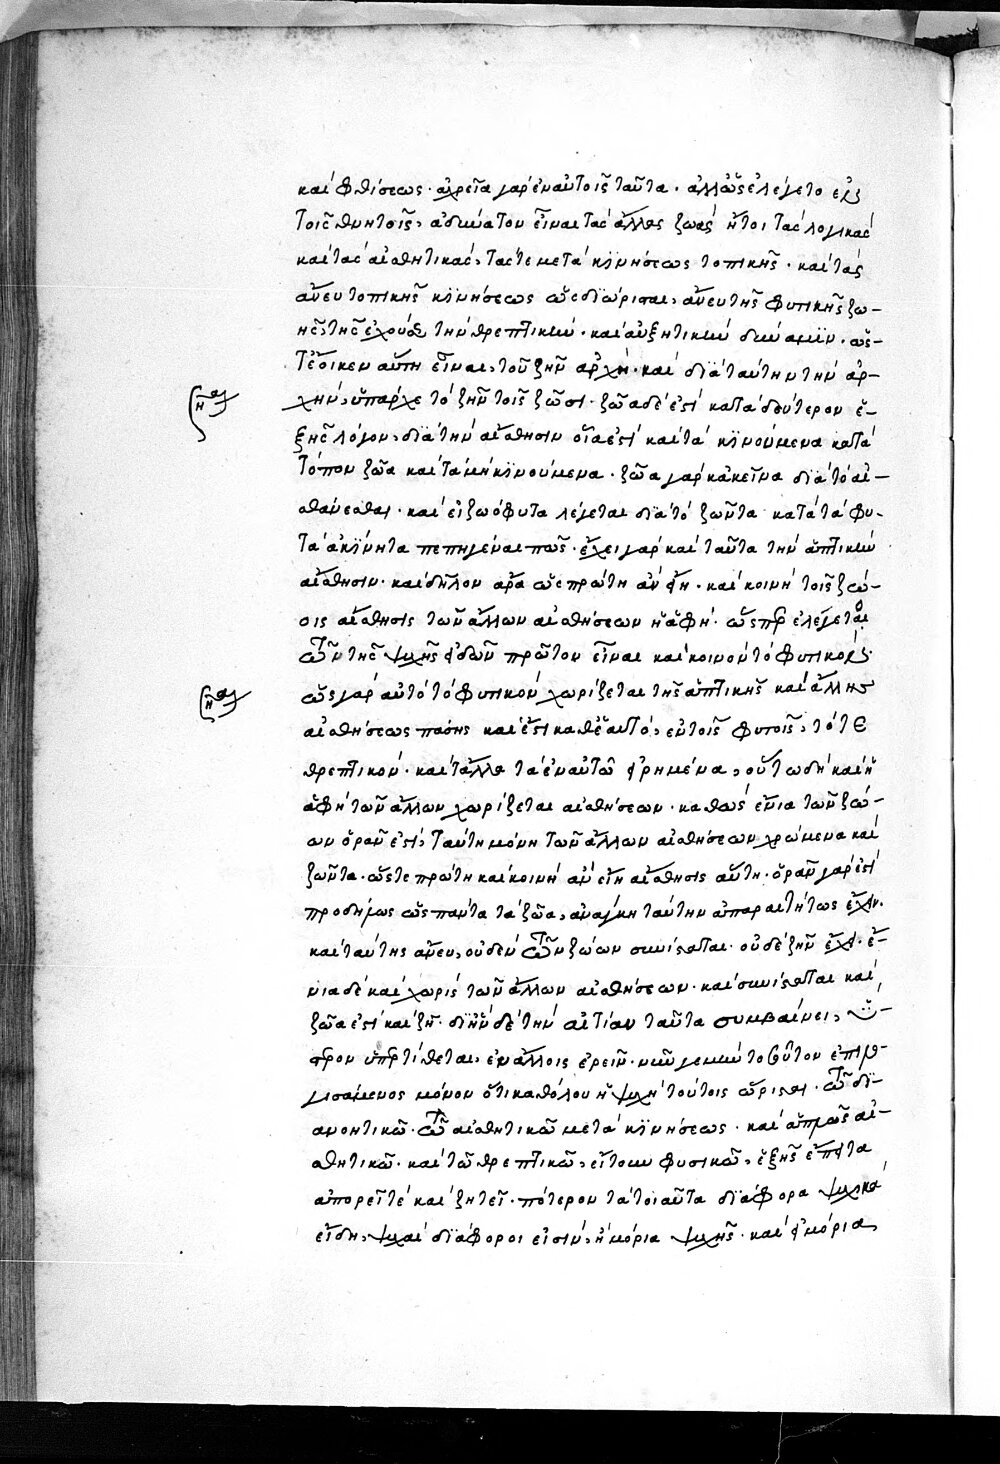 καὶ φθίσεως· ἀχρεῖα γὰρ ἐν αὐτοῖς ταῦτα· ἀλλ' ὡς ἐλέγετο
τοῖς θνητοῖς, ἀδύνατον εἶναι τὰς ἄλλας ζωάς ἤτοι τὰς λογικάς
καὶ τὰς αἰσθητικάς, τάς τε μετὰ κινήσεως τοπικῆς· καὶ τὰς
ἄνευ τοπικῆς κινήσεως ὡς διώρισται, ἄνευ τῆς φυτικῆς ζω-
ῆς, τῆς ἐχούσης τὴν θρεπτικὴν· καὶ αὐξητικὴν δύναμιν· ὥς-
τ' ἔοικεν αὕτη εἶναι, τοῦ ζῆν ἀρχή· καὶ διὰ ταύτην τὴν ἀρ-
χήν, ὑπάρχει τὸ ζῆν τοῖς ζῶσι· ζῶα δέ ἐστι κατὰ δεύτερον ἑ-
ξῆς λόγον, διὰ τὴν αἴσθησιν οἷα ἐστὶ καὶ τὰ κινούμενα κατὰ
τόπον ζῶα καὶ τὰ μὴ κινούμενα· ζῶα γὰρ κἀκεῖνα διὰ τὸ αἰ-
σθάνεσθαι· καὶ εἰ ζωόφυτα λέγεται διὰ τὸ ζῶντα κατὰ τὰ φυ-
τὰ ἀκίνητα πεπηγέναι πως· ἔχει γὰρ καὶ ταῦτα τὴν ἁπτικὴν
αἴσθησιν· καὶ δῆλον ἄρα ὡς πρώτη ἂν εἴη· καὶ κοινὴ τοῖς ζώ-
οις αἴσθησις τῶν ἄλλων αἰσθήσεων ἡ ἁφή· ὥσπερ ἐλέγετο
τῶν τῆς ψυχῆς εἰδῶν πρῶτον εἶναι καὶ κοινὸν τὸ φυτικόν·
ὡς γὰρ αὐτὸ τὸ φυτικὸν χωρίζεται τῆς ἁπτικῆς καὶ ἄλλης
αἰσθήσεως πάσης καὶ ἔστι καθ' ἑαυτό, ἐν τοῖς φυτοῖς, τό τε
θρεπτικόν· καὶ τἆλλα τὰ ἐν αὐτῷ εἰρημένα, οὕτω δὴ καὶ ἡ
ἁφὴ τῶν ἄλλων χωρίζεται αἰσθήσεων· καθὼς ἔνια τῶν ζώ-
ων ὁρᾶν ἐστί, ταύτῃ μόνῃ τῶν ἄλλων αἰσθήσεων χρώμενα καὶ
ζῶντα· ὥστε πρώτη καὶ κοινὴ ἂν εἴη αἴσθησις αὕτη· ὁρᾶν γάρ ἐστι
προδήλως ὡς πάντα τὰ ζῶα, ἀνάγκη ταύτην ἀπαραιτήτως ἔχειν·
καὶ ταύτης ἄνευ, οὐδὲν τῶν ζώων συνίσταται· οὐδὲ ζῆν ἔχει· ἔ-
νια δὲ καὶ χωρὶς τῶν ἄλλων αἰσθήσεων· καὶ συνίσταται καὶ
ζῶα ἐστὶ καὶ ζῇ· δι' ἣν δὲ τὴν αἰτίαν ταῦτα συμβαίνει, ὕ-
στερον ὑπερτίθεται, ἐν ἄλλοις ἐρεῖν· νῦν γε μὴν τοσοῦτον ἐπιλο-
γισάμενος μόνον ὅτι καθόλου ἡ ψυχὴ τούτοις ὥρισται· τῷ δι-
ανοητικῷ· τῷ αἰσθητικῷ μετὰ κινήσεως· καὶ ἁπλῶς αἰ-
σθητικῷ· καὶ τῷ θρεπτικῷ, εἴτουν φυσικῷ, ἑξῆς ἔπειτα
ἀπορεῖ τὲ καὶ ζητεῖ· πότερον τὰ τοιαῦτα διάφορα ψυχικὰ
εἴδη, ψυχαὶ διάφοροι εἰσίν, ἢ μόρια ψυχῆς· καὶ εἰ μόρια,